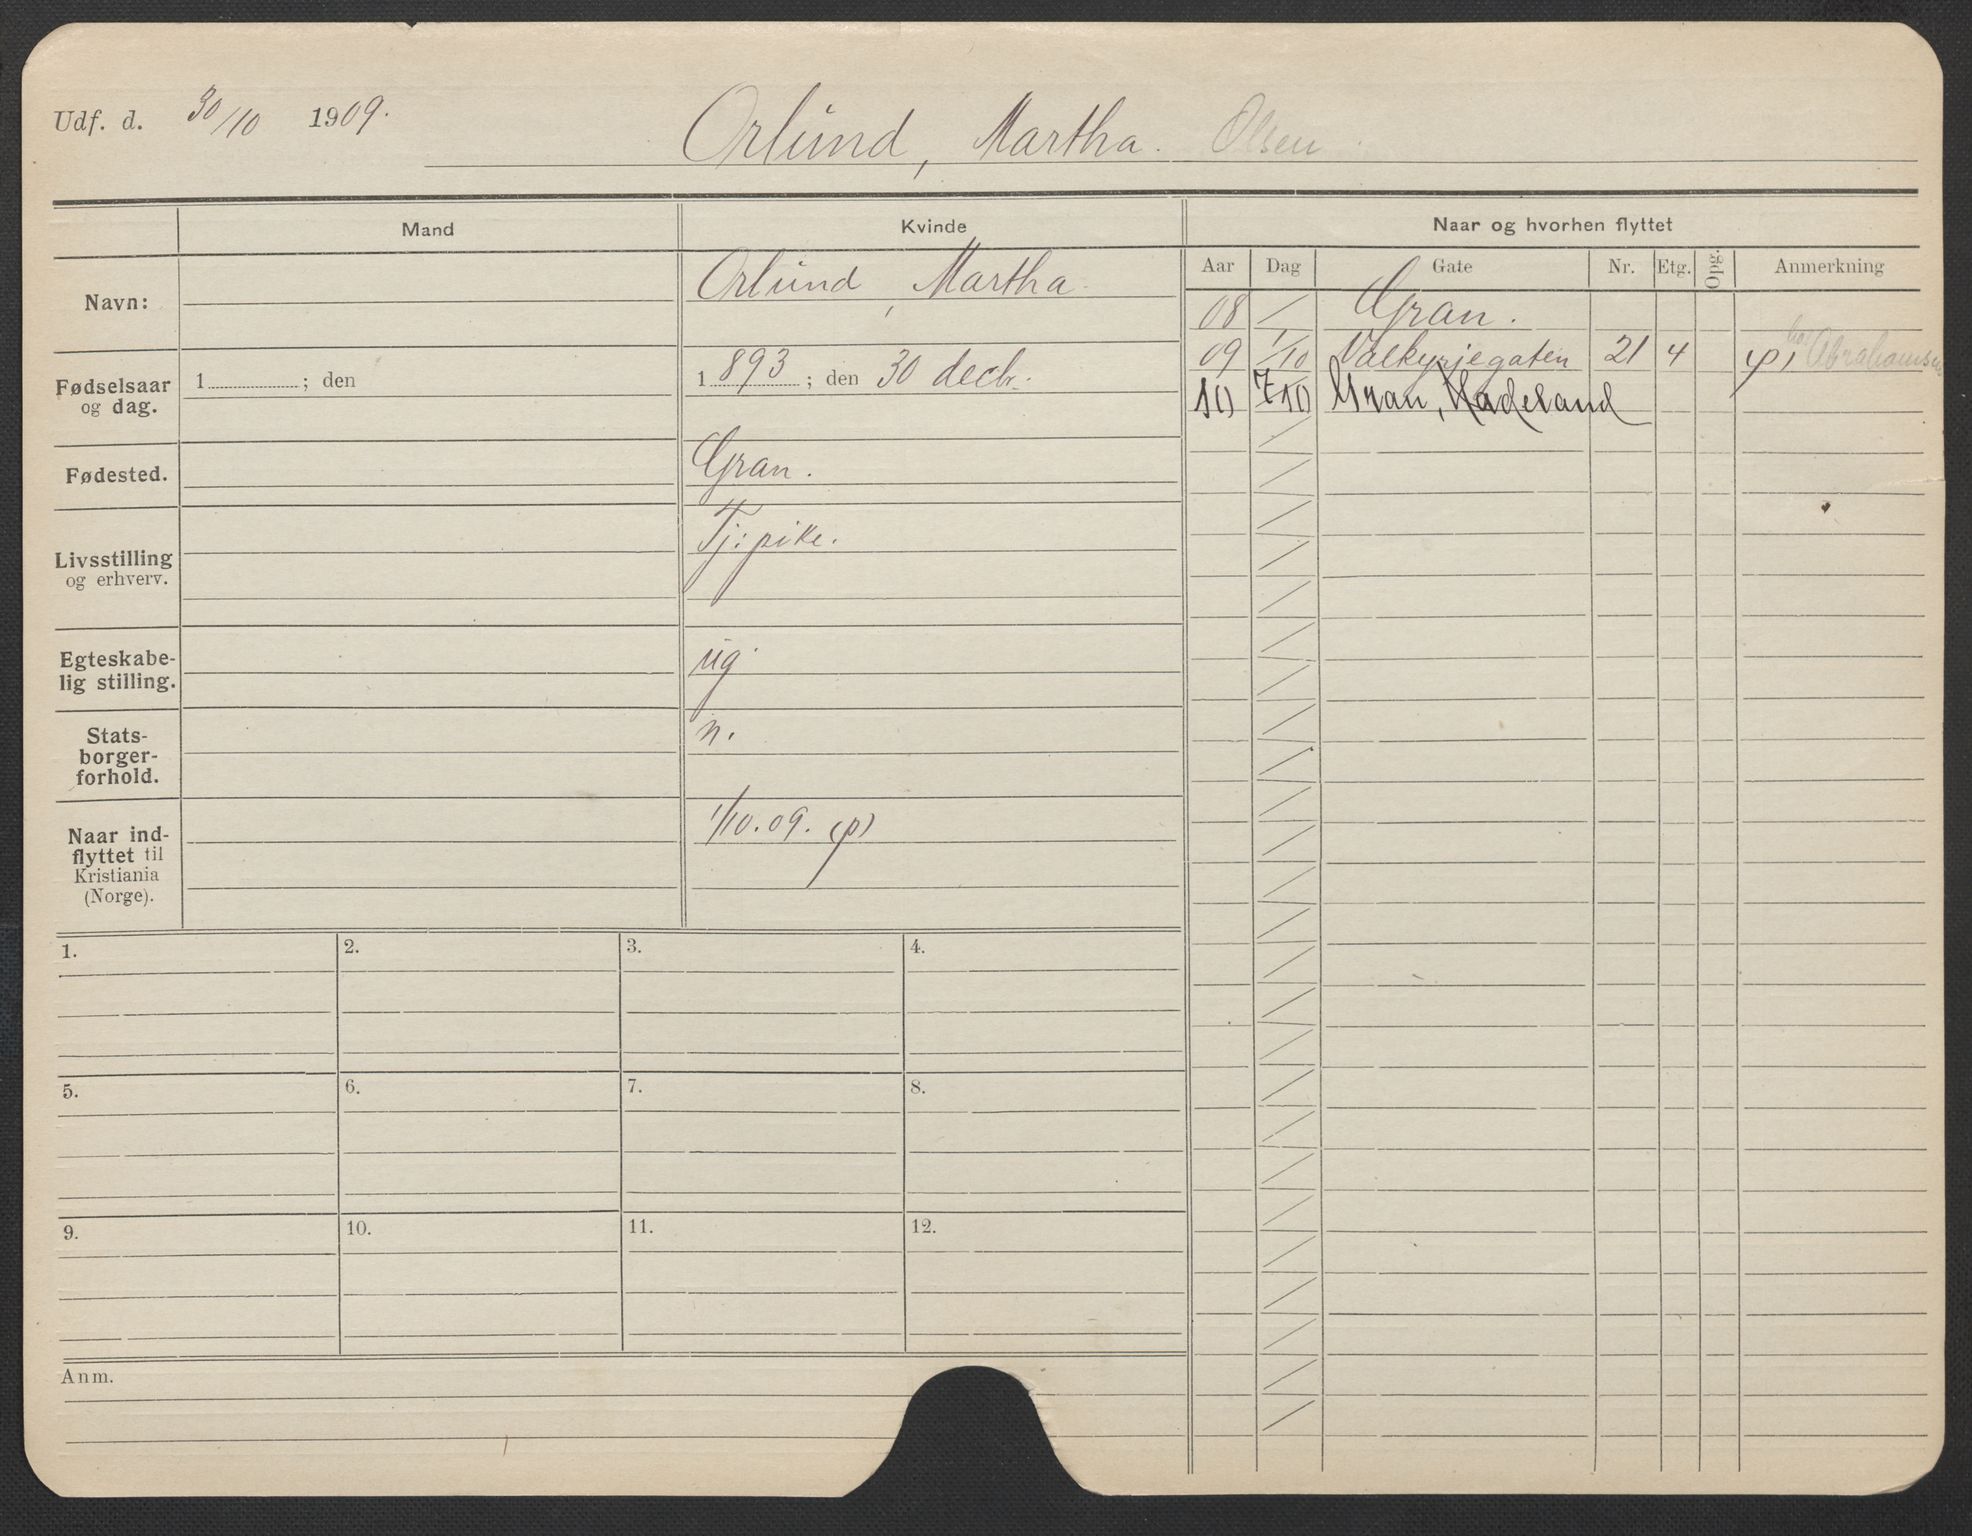 Udf. d. 30/10 1909.
Orlund, Martha. Olsen
Mand Kvinde Naar og hvorhen flyttet
Aar Dag Gate Nr. Etg. Opg. Anmerkning
Navn: Orlund, Martha.
08 / Gran.
09 1/10 Valkyrjegaten 21 4 (p) hos Abrahamsen
10 7/10 Gran, Hadeland
Fødselsaar
og dag.
1 ; den
1893 ; den 30 decbr.
Fødested. Gran.
Livsstilling
og erhverv.
Tj: pike.
Egteskabe-
lig stilling.
ug
Stats-
borger-
forhold.
n.
Naar ind-
flyttet til
Kristiania
(Norge).
1/10.09. (p)
1. 2. 3. 4.
5. 6. 7. 8.
9. 10. 11. 12.
Anm.